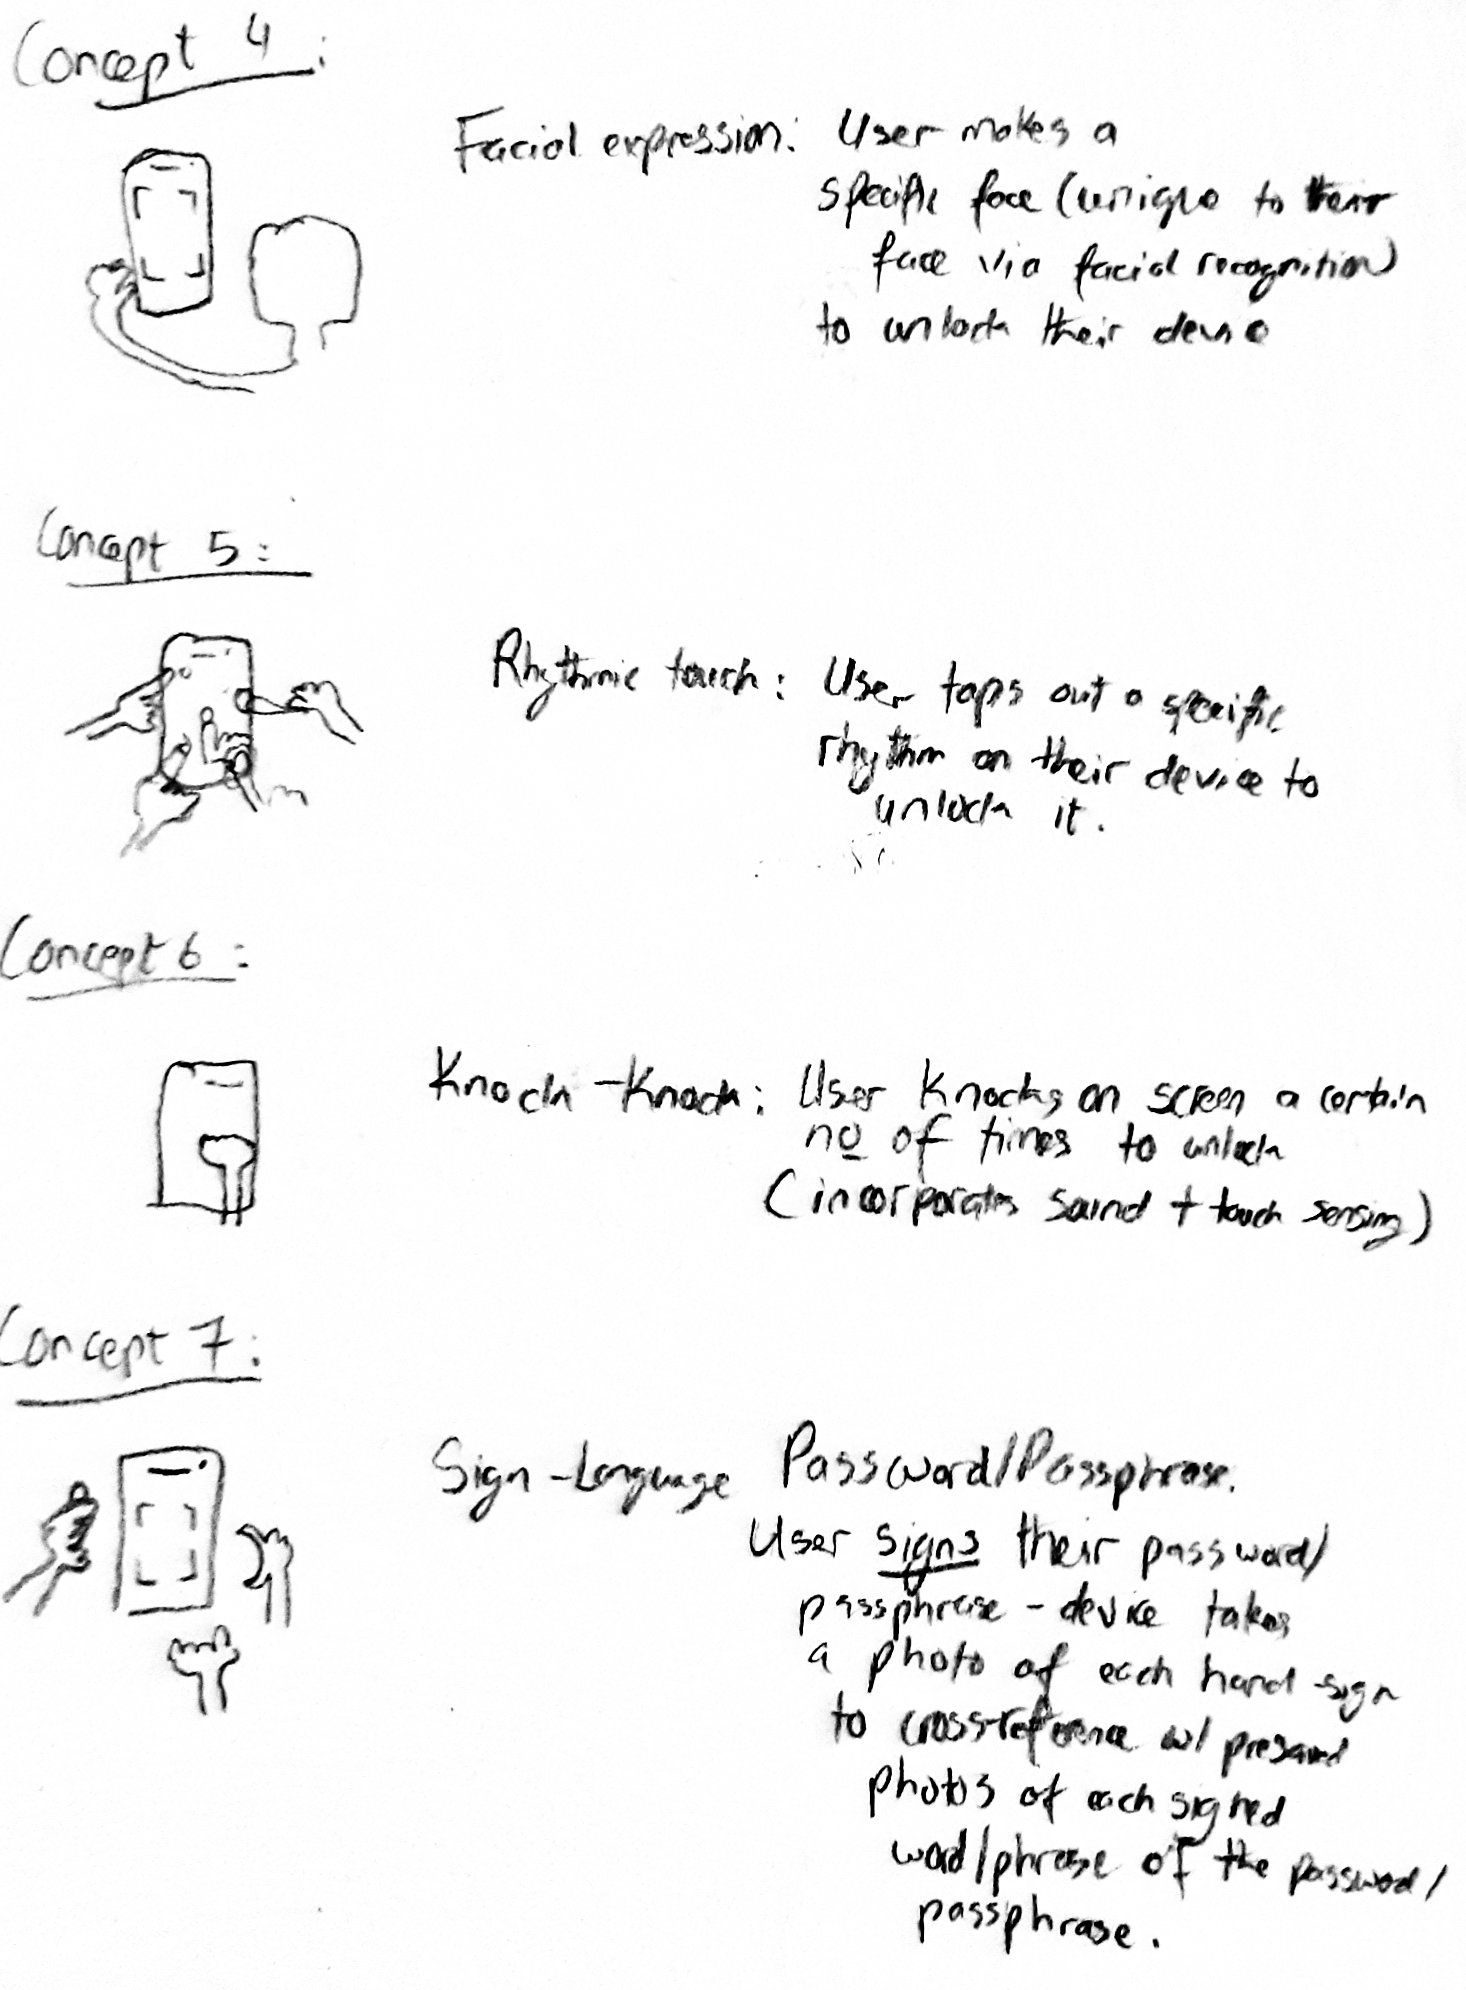 Concept 4:
Facial expression: User makes a
specific face (unique to their
face via facial recognition)
to unlock their device
Concept 5:
Rhythmic touch: User taps out a specific
rhythm on their device to
unlock it.
Concept 6:
Knock-Knock: User Knocks on screen a certain
no of times to unlock
(incorporates sound + touch sensing)
Concept 7:
Sign-Language Password/Passphrase.
User signs their password/
passphrase - device takes
a photo of each hand-sign
to cross-reference w/ presaved
photos of each signed
word/phrase of the password/
passphrase.